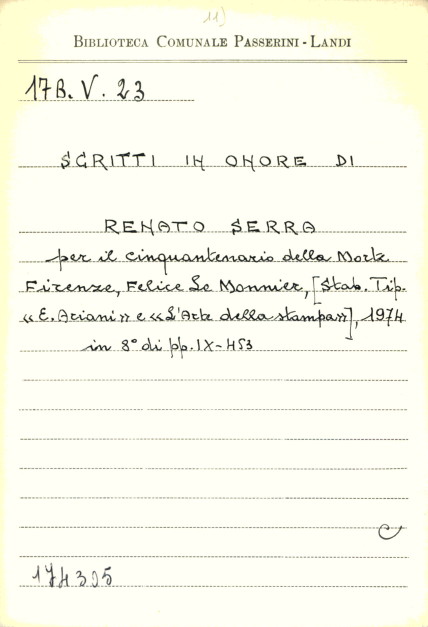 11)
BIBLIOTECA COMUNALE PASSERINI-LANDI
17B. V. 23
SCRITTI IN ONORE DI
RENATO SERRA
per il cinquantenario della Morte
Firenze, Felice Le Monnier, [Stab. Tip.
«E. Ariani» e «L'Arte della stampa»], 1974
in 8° di pp. IX-453
C
174395